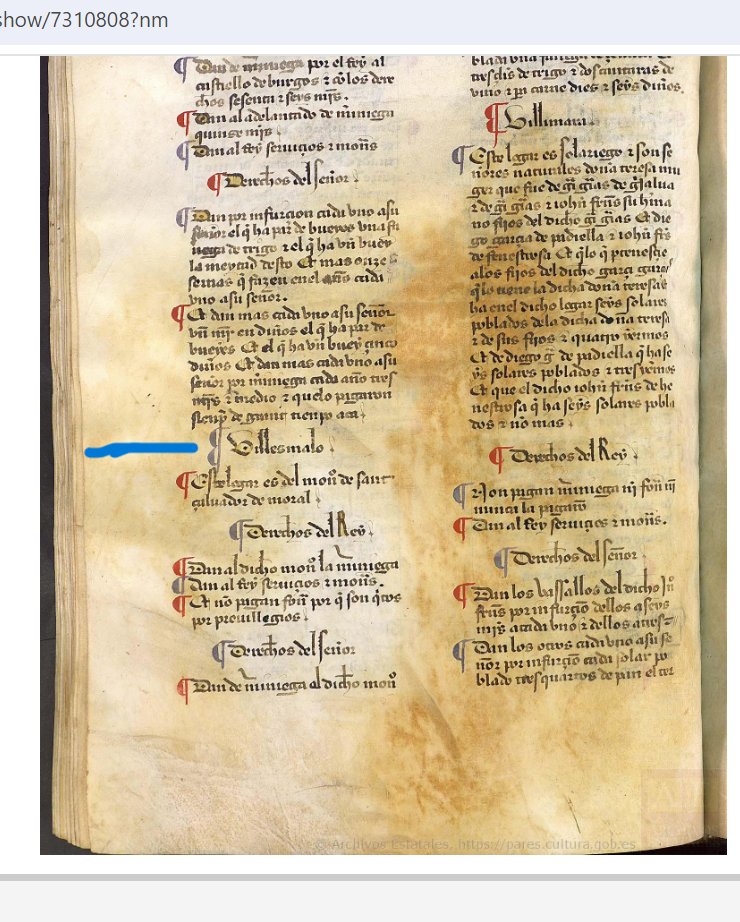 show/7310808?nm
Dan de miniega por el rey al
castiello de burgos z colos dere
chos sesenta z seys mrs.
Dan al adelantado de miniega
quinse mrs
Dan al Rey seruiçios z mon̄s
Derechos del señor.
Dan por infurcion cada vno asu
señor el q̄ ha par de bueyes vna fa
nega de trigo z el q̄ ha vn̄ buey
la meytad desto Et mas onze
sernas q̄ fazen en el año cada
vno asu señor.
Et dan mas cada vno asu señor
vn̄ mr̄ en din̄os el q̄ ha par de
bueyes Et el q̄ ha vn̄ buey çinco
din̄os Et dan mas cada vno asu
señor por miniega cada año tres
mrs z medio z que lo pagaron
sienp̄ de grant tienpo aca.
Villesmalo.
Este logar es del mon̄ de sant
saluador de moral.
Derechos del Rey.
Dan al dicho mon̄ la miniega
Dan al Rey seruiçios z mon̄s.
Et no pagan fon̄ por q̄ son q̄tos
por preuillegios.
Derechos del señor
Dan de miniega al dicho mon̄
tresdis de trigo z dos cantaras de
vino z pa carne dies z seys din̄os.
Villimara.
Este logar es solariego z son se
ñores naturales doña teresa mu
ger que fue de
no fijos del dicho
go garçia de padiella z iohn̄
de fenestrosa Et q̄lo q̄ pertenesçe
alos fijos del dicho garçi
q̄ lo tiene la dicha doña teresa
ha en el dicho logar seys solares
poblados dela dicha doña teresa
z de sus fijos z quatro yermos
Et de diego g̃ de padiella q̄ ha se
ys solares poblados z tres yermos
Et que el dicho iohn̄ fr̄ns de fe
nestrosa q̄ ha seys solares pobla
dos z no mas.
Derechos del Rey.
Non pagan miniega ni fon̄ ni
nunca la pagaron
Dan al Rey seruiçios z mon̄s.
Derechos del señor
Dan los vassallos del dicho Jn̄
fr̄ns por infurçion dellos a seys
mrs a cada vno z dellos a tres
Dan los otros cada vno asu se
ñor por infurçion cada solar po
blado tres quartos de pan el ter
© Archivos Estatales, https://pares.cultura.gob.es